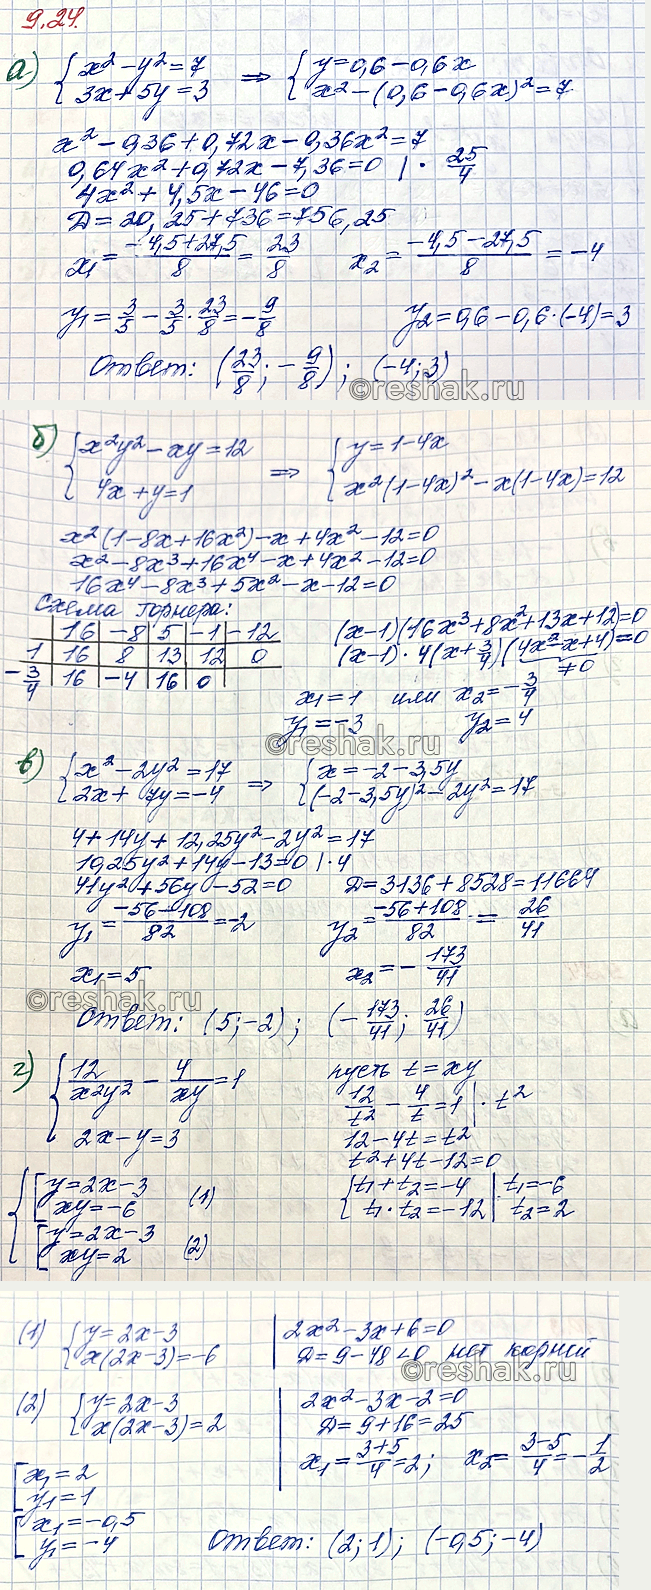 9.24.
а) { x² − y² = 7 ; 3x + 5y = 3 ⇒ { y = 0,6 − 0,6x ; x² − (0,6 − 0,6x)² = 7
x² − 0,36 + 0,72x − 0,36x² = 7
0,64x² + 0,72x − 7,36 = 0 | · 25/4
4x² + 4,5x − 46 = 0
D = 20,25 + 736 = 756,25
x₁ = (−4,5 + 27,5)/8 = 23/8 x₂ = (−4,5 − 27,5)/8 = −4
y₁ = 3/5 − 3/5 · 23/8 = −9/8 y₂ = 0,6 − 0,6·(−4) = 3
Ответ: (23/8; −9/8); (−4; 3)
©reshak.ru
б) { x²y² − xy = 12 ; 4x + y = 1 ⇒ { y = 1 − 4x ; x²(1 − 4x)² − x(1 − 4x) = 12
x²(1 − 8x + 16x²) − x + 4x² − 12 = 0
x² − 8x³ + 16x⁴ − x + 4x² − 12 = 0
16x⁴ − 8x³ + 5x² − x − 12 = 0
Схема Горнера:
16 | −8 | 5 | −1 | −12
1 | 16 | 8 | 13 | 12 | 0
−3/4 | 16 | −4 | 16 | 0
(x − 1)(16x³ + 8x² + 13x + 12) = 0
(x − 1) · 4(x + 3/4)(4x² − x + 4) = 0
≠0
x₁ = 1 или x₂ = −3/4
y₁ = −3 y₂ = 4
©reshak.ru
в) { x² − 2y² = 17 ; 2x + 7y = −4 ⇒ { x = −2 − 3,5y ; (−2 − 3,5y)² − 2y² = 17
4 + 14y + 12,25y² − 2y² = 17
10,25y² + 14y − 13 = 0 | · 4
41y² + 56y − 52 = 0 D = 3136 + 8528 = 11664
y₁ = (−56 − 108)/82 = −2 y₂ = (−56 + 108)/82 = 26/41
x₁ = 5 x₂ = −173/41
©reshak.ru
Ответ: (5; −2); (−173/41; 26/41)
г) { 12/x²y² − 4/xy = 1 ; 2x − y = 3
пусть t = xy
12/t² − 4/t = 1 | · t²
12 − 4t = t²
t² + 4t − 12 = 0
{ t₁ + t₂ = −4 ; t₁ · t₂ = −12 | t₁ = −6 ; t₂ = 2
{ [ y = 2x − 3 ; xy = −6 (1)
[ y = 2x − 3 ; xy = 2 (2)
(1) { y = 2x − 3 ; x(2x − 3) = −6 | 2x² − 3x + 6 = 0
D = 9 − 48 < 0 нет корней
©reshak.ru
(2) { y = 2x − 3 ; x(2x − 3) = 2 | 2x² − 3x − 2 = 0
D = 9 + 16 = 25
x₁ = (3 + 5)/4 = 2; x₂ = (3 − 5)/4 = −1/2
[ x₁ = 2 ; y₁ = 1
[ x₁ = −0,5 ; y₁ = −4
Ответ: (2; 1); (−0,5; −4)